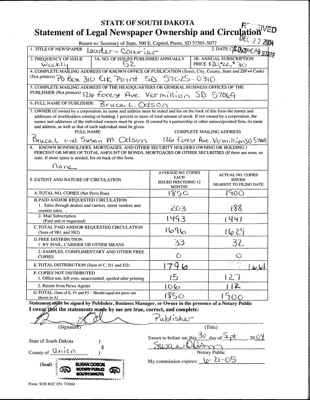 STATE OF SOUTH DAKOTA
Statement of Legal Newspaper Ownership and Circulation
Return to: Secretary of State, 500 E. Capitol, Pierre, SD 57501-5077
DEC 22 2004
1. TITLE OF NEWSPAPER Leader-Courier
2. DATE
3. FREQUENCY OF ISSUE Weekly
3A. NO. OF ISSUES PUBLISHED ANNUALLY 52
3B. ANNUAL SUBSCRIPTION PRICE
4. COMPLETE MAILING ADDRESS OF KNOWN OFFICE OF PUBLICATION (Street, City, County, State and ZIP+4 Code) (Not printers)
PO Box 310 Elk Point SD 57025-0310
5. COMPLETE MAILING ADDRESS OF THE HEADQUARTERS OR GENERAL BUSINESS OFFICES OF THE
PUBLISHER (Not printer) 1216 Forest Ave. Vermillion SD 57069
6. FULL NAME OF PUBLISHER: Bruce L. Odson
7. OWNER (If owned by a corporation, its name and address must be stated and list on the back of this form the names and
addresses of stockholders owning or holding 1 percent or more of total amount of stock. If not owned by a corporation, the
names and addresses of the individual owners must be given. If owned by a partnership or other unincorporated firm, its name
and address, as well as that of each individual must be given.
FULL NAME COMPLETE MAILING ADDRESS
Bruce L and Susan M Odson 1216 Forest Ave Vermillion SD 57069
8. KNOWN BONDHOLDERS, MORTGAGES, AND OTHER SECURITY HOLDERS OWNING OR HOLDING 1
PERCENT OR MORE OF TOTAL AMOUNT OF BONDS, MORTGAGES OR OTHER SECURITIES (If there are none, so
state. If more space is needed, list on back of this form.
None
9. EXTENT AND NATURE OF CIRCULATION
AVERAGE NO. COPIES EACH ISSUED PRECEDING 12 MONTHS
ACTUAL NO. COPIES ISSUED NEAREST TO FILING DATE
A. TOTAL NO. COPIES (Net Press Run) 1850 1900
B. PAID AND/OR REQUESTED CIRCULATION
1. Sales through dealers and carriers, street vendors and counter sales. 203 188
2. Mail Subscription (Paid and/or requested) 1493 1441
C. TOTAL PAID AND/OR REQUESTED CIRCULATION (Sum of 9B1 and 9B2) 1696 1629
D. FREE DISTRIBUTION
1. BY MAIL, CARRIER OR OTHER MEANS 33 32
2. SAMPLES, COMPLIMENTARY AND OTHER FREE COPIES 0 0
E. TOTAL DISTRIBUTION (Sum of C, D1 and D2) 1661
F. COPIES NOT DISTRIBUTED
1. Office use, left over, unaccounted, spoiled after printing 15 127
2. Return from News Agents 106 112
G. TOTAL (Sum of E, F1 and F2 - Should equal net press run shown in A) 1850 1900
Statement must be signed by Publisher, Business Manager, or Owner in the presence of a Notary Public
I swear that the statements made by me are true, correct, and complete:
Publisher
(Signature) (Title)
State of South Dakota )
Sworn to before me this 30 day of Sept 2004
County of Union )
Susan Odson
Notary Public
(Seal)
SUSAN ODSON
NOTARY PUBLIC
SOUTH DAKOTA
My commission expires: 6-21-05
SOS REC 051 7/2004